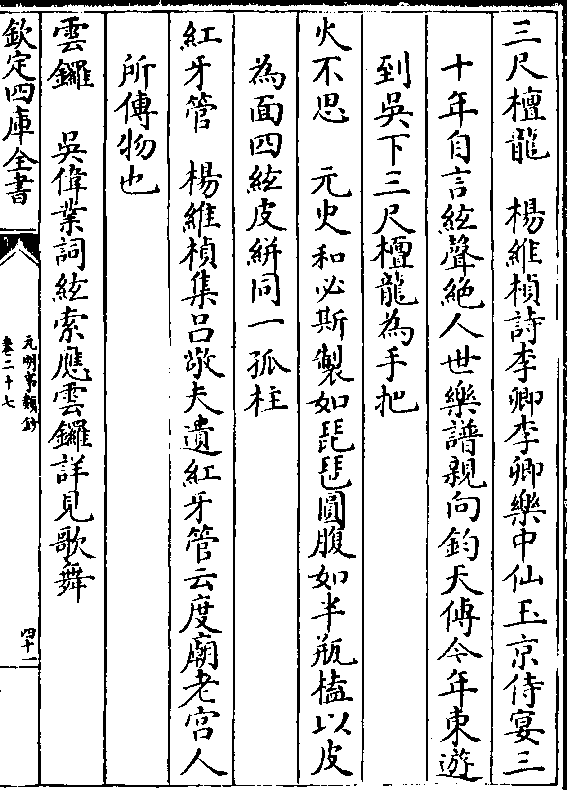 三尺檀龍　楊維楨詩李卿李卿樂中仙玉京侍宴三
十年自言絃聲絶人世樂譜親向鈞天傳今年東遊
到吳下三尺檀龍為手把
火不思　元史和必斯製如琵琶圓腹如半瓶榼以皮
為面四絃皮絣同一孤柱
紅牙管　楊維楨集吕敬夫遺紅牙管云度廟老宫人
所傳物也
雲鑼　吳偉業詞絃索應雲鑼詳見歌舞
欽定四庫全書
元明事類鈔
卷二十七
四十一